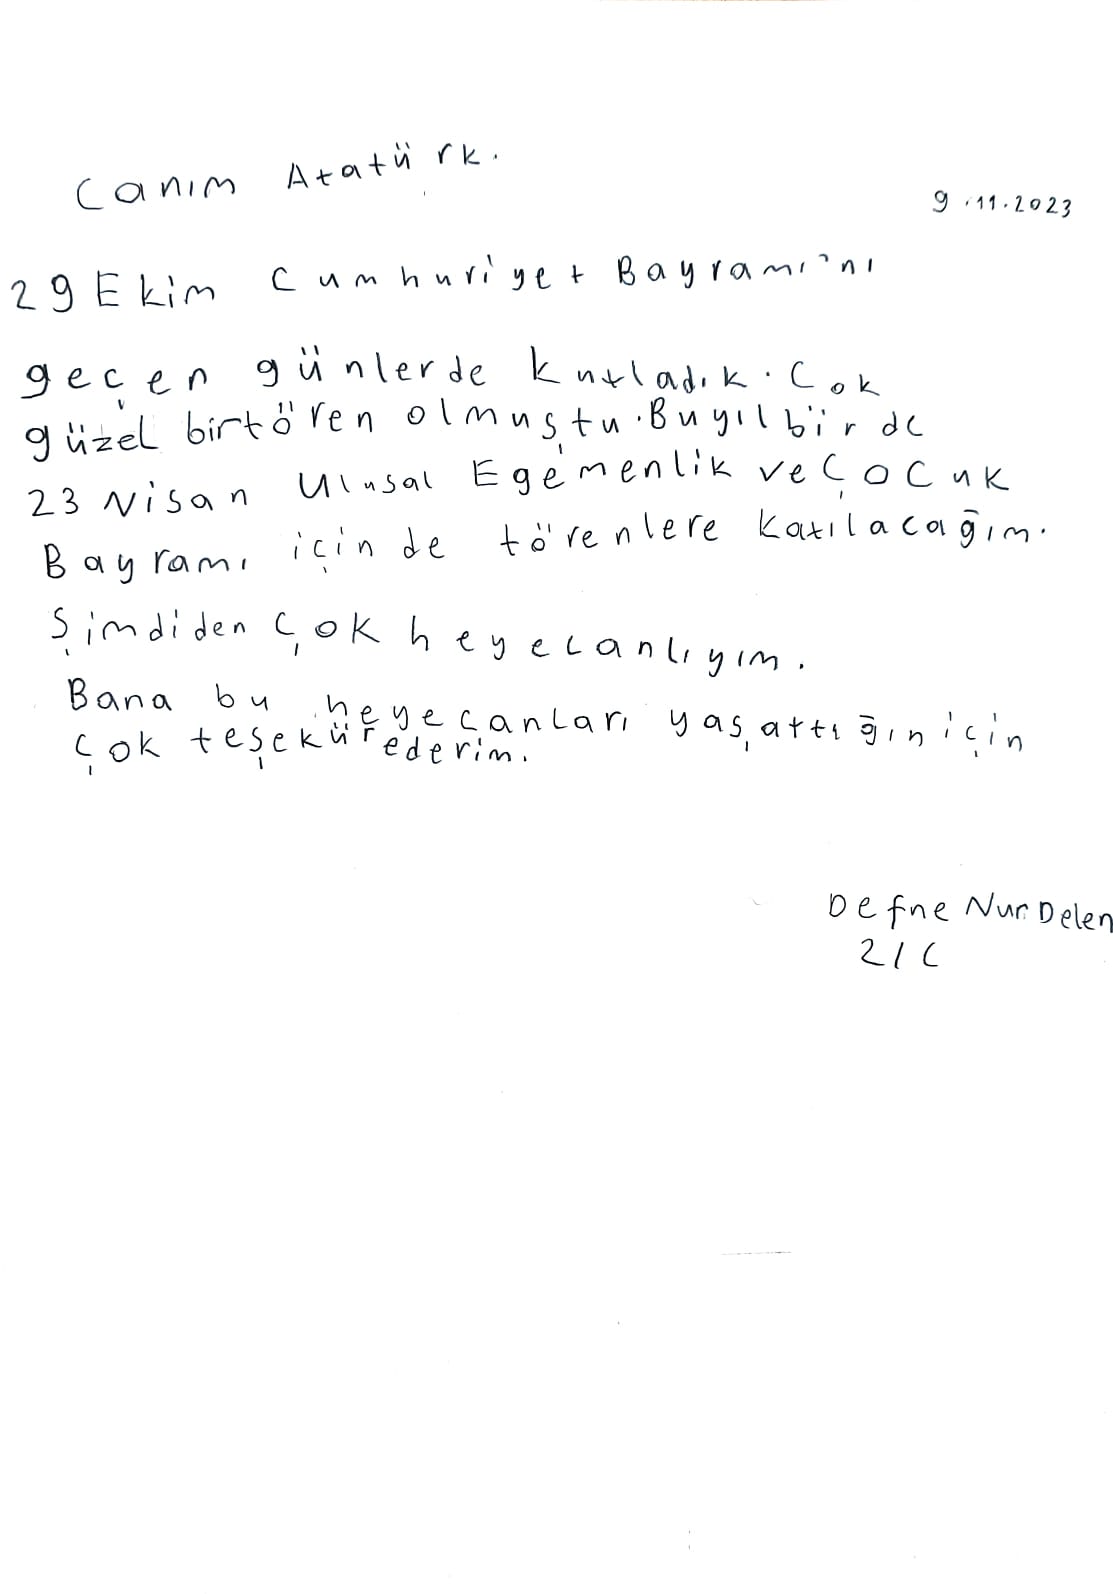 Canım Atatürk.
9.11.2023
29 Ekim Cumhuriyet Bayramı'nı
geçen günlerde kutladık. Cok
güzel birtören olmuştu. Buyıl bir de
23 Nisan Ulusal Egemenlik ve Çocuk
Bayramı için de törenlere katılacağım.
Şimdiden çok heyecanlıyım.
Bana bu heyecanları yaşattığın için
çok teşekür ederim.
Defne Nur Delen
2/C